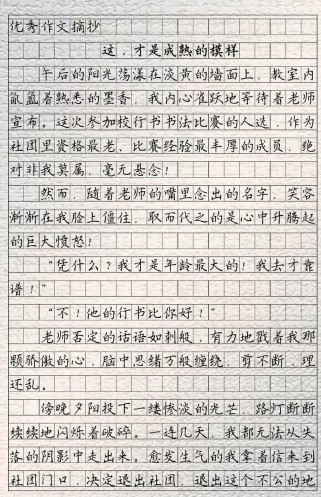 优秀作文摘抄
这，才是成熟的模样
午后的阳光荡漾在淡黄的墙面上，教室内
氤氲着熟悉的墨香，我内心雀跃地等待着老师
宣布，这次参加校行书书法比赛的人选，作为
社团里资格最老、比赛经验最丰厚的成员，绝
对非我莫属，毫无悬念！
然而，随着老师的嘴里念出的名字，笑容
渐渐在我脸上僵住，取而代之的是心中升腾起
的巨大愤怒！
“凭什么？我才是年龄最大的！我去才靠
谱！”
“不！他的行书比你好！”
老师否定的话语如刺般，有力地戳着我那
颗骄傲的心，脑中思绪万般缠绕，剪不断，理
还乱。
傍晚夕阳投下一缕惨淡的光芒，路灯断断
续续地闪烁着破碎。一连几天，我都无法从失
落的阴影中走出来。愈发生气的我拿着信来到
社团门口，决定退出社团，退出这个不公的地